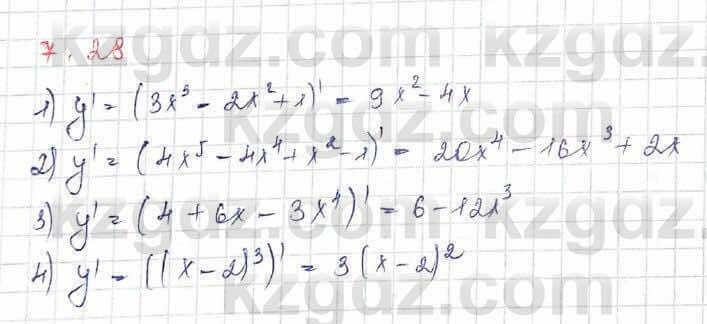 7.28
1) y' = (3x³ - 2x² + 1)' = 9x² - 4x
2) y' = (4x⁵ - 4x⁴ + x² - 1)' = 20x⁴ - 16x³ + 2x
3) y' = (4 + 6x - 3x⁴)' = 6 - 12x³
4) y' = ((x - 2)³)' = 3(x - 2)²
kzgdz.com kzgdz.com
kzgdz.com
kzgdz.com
kzgdz.com
kzgdz.com